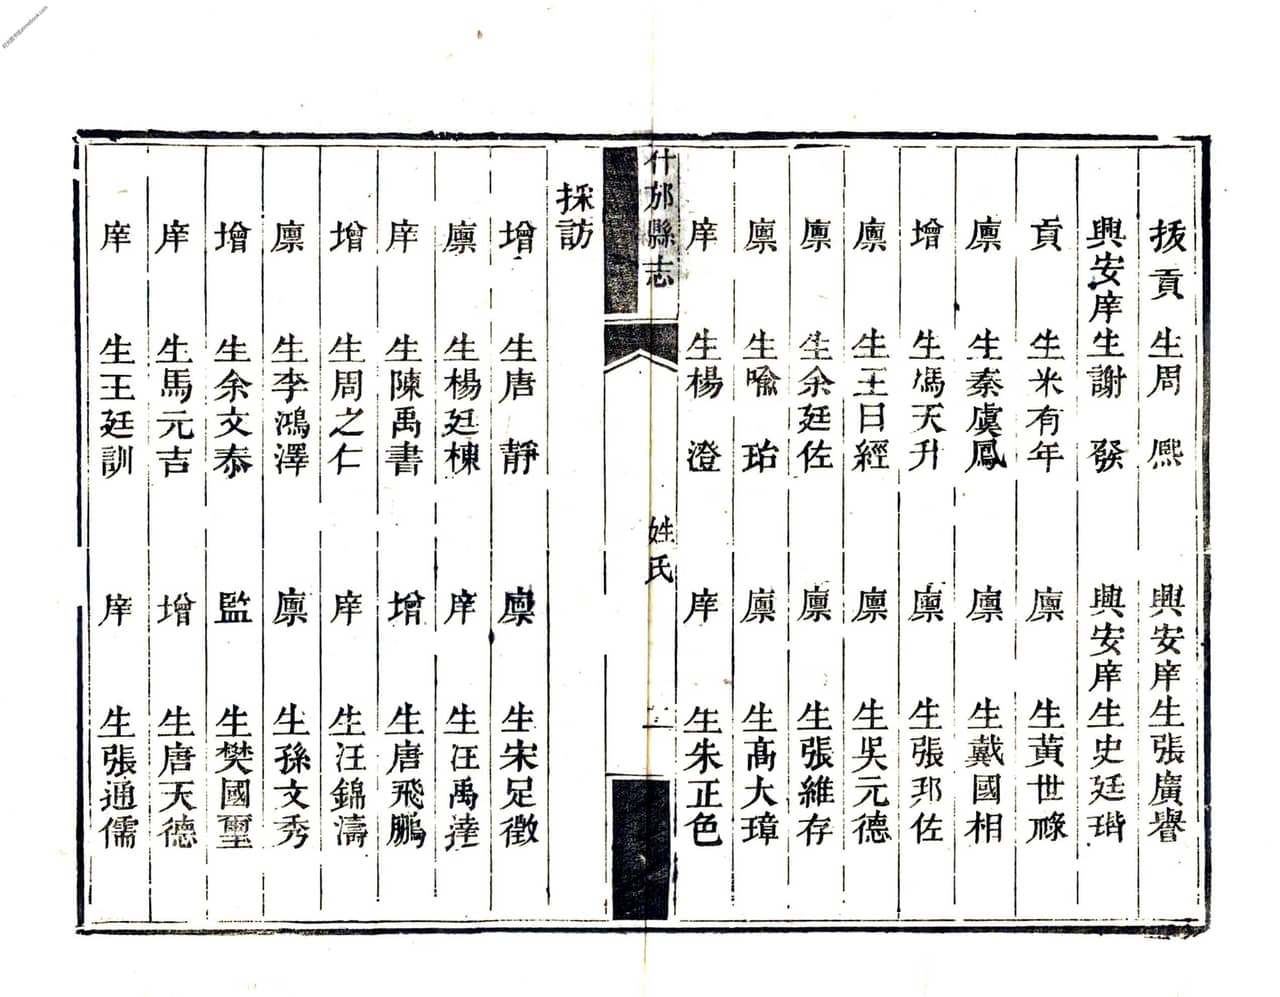 拔貢生周熙　興安庠生張廣譽
興安庠生謝發　興安庠生史廷瑎
貢生米有年　廪生黃世祿
廪生秦虞鳳　廪生戴國相
增生馮天升　廪生張邦佐
廪生王日經　廪生吳元德
廪生余廷佐　廪生張維存
廪生喩珆　廪生高大璋
庠生楊澄　庠生朱正色
什邡縣志　姓氏　二
採訪
增生唐靜　廪生宋足徵
廪生楊廷棟　庠生汪禹達
庠生陳禹書　增生唐飛鵬
增生周之仁　庠生汪錦濤
廪生李鴻澤　廪生孫文秀
增生余文泰　監生樊國璽
庠生馬元吉　增生唐天德
庠生王廷訓　庠生張通儒